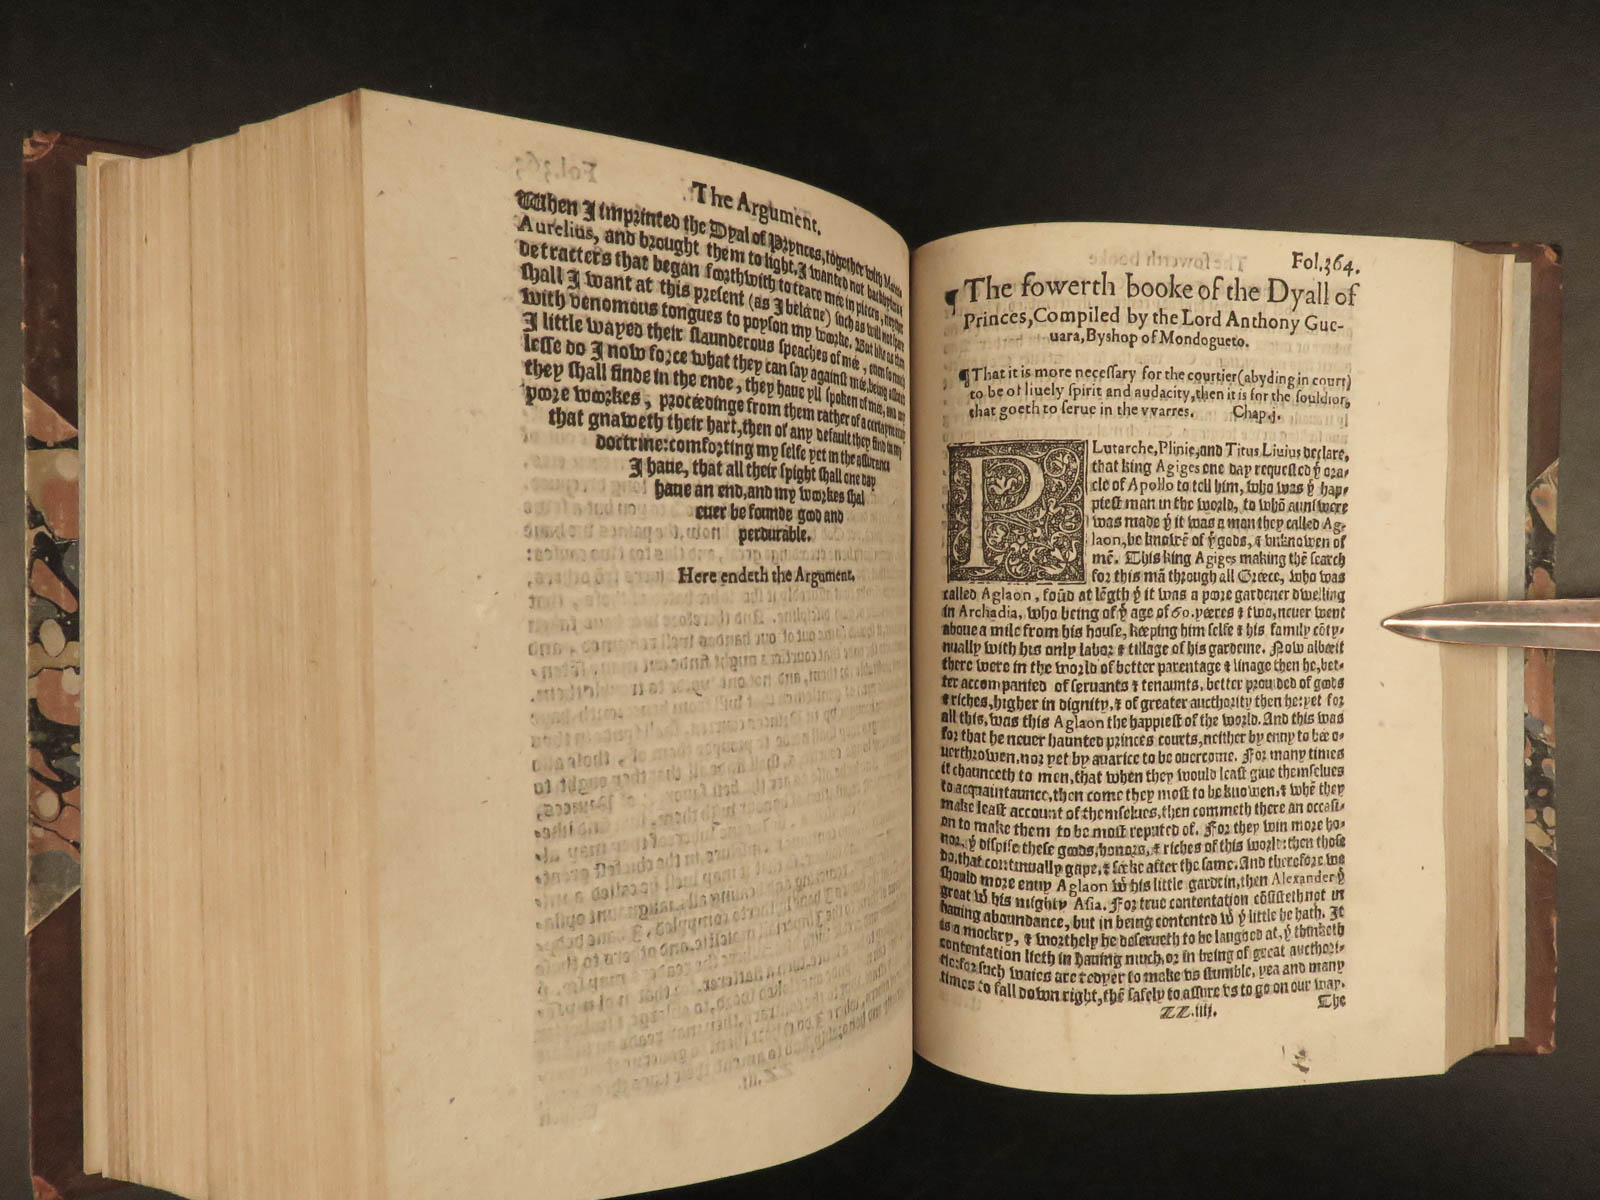 The Argument.
When I imprinted the Dyal of Prynces, together with Marcus
Aurelius, and brought them to light, I wanted not backbyters &
detracters that began forthwith to teare mée in pieces, neyther
shall I want at this present (as I beléeue) such as will not spare
with venomous tongues to poyson my worke. But like as then
I little wayed their slaunderous speaches of mée, euen so much
lesse do I now force what they can say against mée, being assured
they shall finde in the ende, they haue yll spoken of mée, and my
poore woorkes, procéedinge from them rather of a certayne enuy
that gnaweth their hart, then of any default they find in my
doctrine: comforting my selfe yet in the assurance
I haue, that all their spight shall one day
haue an end, and my workes shal
euer be founde good and
perdurable.
Here endeth the Argument.
Fol.364.
¶ The fowerth booke of the Dyall of
Princes, Compiled by the Lord Anthony Gue-
uara, Byshop of Mondogueto.
¶ That it is more necessary for the courtier (abyding in court)
to be of liuely spirit and audacity, then it is for the souldior,
that goeth to serue in the vvarres. Chap.j.
PLutarche, Plinie, and Titus Liuius declare,
that king Agiges one day requested yͤ ora-
cle of Apollo to tell him, who was yͤ hap-
piest man in the world, to whõ aunswere
was made yͭ it was a man they called Ag-
laon, be knowẽ of yͤ gods, & vnknowen of
mẽ. This king Agiges making thẽ search
for this mã through all Greece, who was
called Aglaon, foũd at lẽgth yͭ it was a poore gardener dwelling
in Archadia, who being of yͤ age of 60. yéeres & two, neuer went
aboue a mile from his house, kéeping him selfe & his family cõty-
nually with his only labor & tillage of his gardeine. Now albeit
there were in the world of better parentage & linage then he, bet-
ter accompanied of seruants & tenaunts, better prouided of goods
& riches, higher in dignity, & of greater aucthority then he: yet for
all this, was this Aglaon the happiest of the world. And this was
for that he neuer haunted princes courts, neither by enuy to bée o-
uerthrowen, nor yet by auarice to be ouercome. For many times
it chaunceth to men, that when they would least giue themselues
to acquaintaunce, then come they most to be knowen, & whẽ they
make least account of themselues, then commeth there an occasi-
on to make them to be most reputed of. For they win more ho-
nor, yͭ dispise these goods, honors, & riches of this world: then those
do, that continually gape, & séeke after the same. And therefore we
should more enuy Aglaon wͭ his little gardein, then Alexander yͤ
great wͭ his mighty Asia. For true contentation cõsisteth not in
hauing aboundance, but in being contented wͭ yͤ little he hath. It
is a mockry, & worthely he deserueth to be laughed at, yͭ thinketh
contentation lieth in hauing much, or in being of great authori-
tie: for such waies are redyer to make vs stumble, yea and many
times to fall down right, thẽ safely to assure vs to go on our way.
ZZ.iiii. The